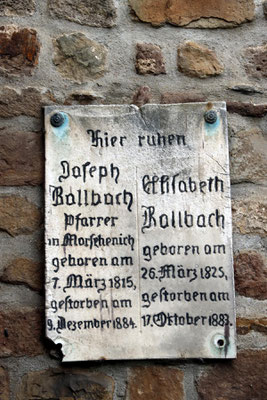 Hier ruhen
Joseph
Rollbach
Pfarrer
in Morschenich
geboren am
7. März 1815,
gestorben am
9. Dezember 1884.
Elisabeth
Rollbach
geboren am
26. März 1825,
gestorben am
17. Oktober 1883.